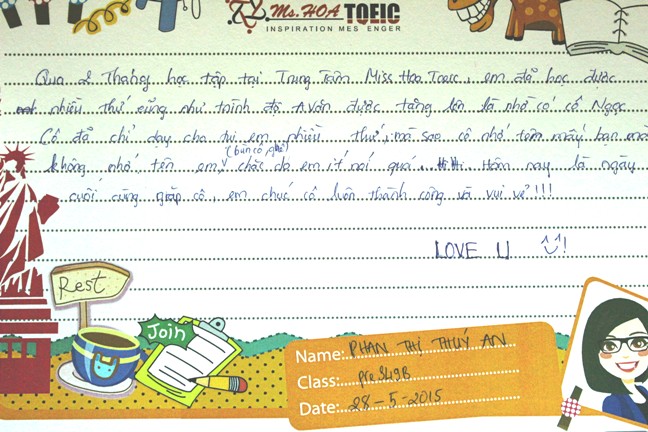 Ms. HOA TOEIC
INSPIRATION MESSENGER
Qua 2 tháng học tập tại Trung Tâm Miss Hoa Toeic, em đã học được
nhiều thứ cũng như trình độ A.văn được tăng lên là nhờ có cô Ngọc
Cô đã chỉ dạy cho tụi em nhiều thứ, mà sao cô nhớ tên mấy bạn mà
không nhớ tên em, (buồn cô ghê) chắc do em ít nói quá... Hihi. Hôm nay là ngày
cuối cùng gặp cô, em chúc cô luôn thành công và vui vẻ!!!
LOVE U
Rest
Join
Name: PHAN THỊ THUÝ AN
Class: pre S49B
Date: 28-5-2015